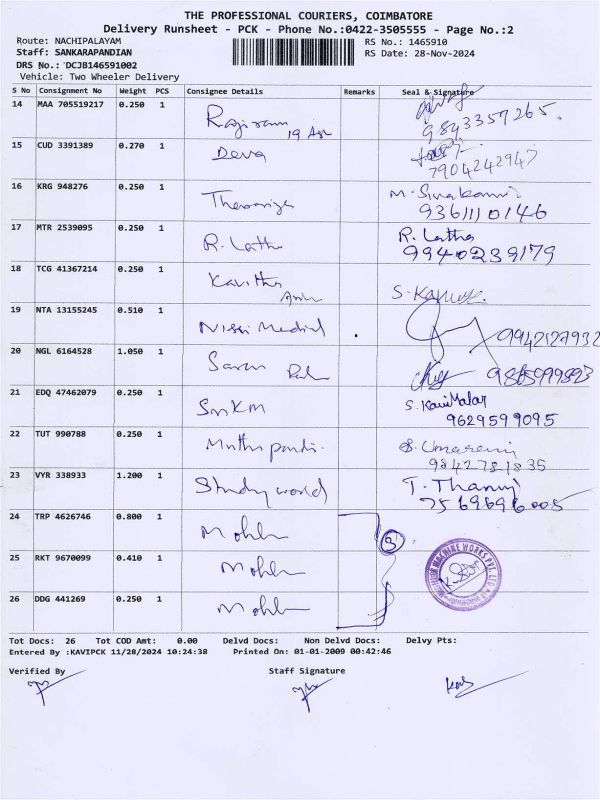 THE PROFESSIONAL COURIERS, COIMBATORE
Delivery Runsheet - PCK - Phone No.:0422-3505555 - Page No.:2
Route: NACHIPALAYAM
RS No.: 1465910
Staff: SANKARAPANDIAN
RS Date: 28-Nov-2024
DRS No.: DCJB146591002
Vehicle: Two Wheeler Delivery
S No Consignment No Weight PCS Consignee Details Remarks Seal & Signature
14 MAA 705519217 0.250 1
9843357265.
15 CUD 3391389 0.270 1 Deva
7904242947
16 KRG 948276 0.250 1
9361110146
17 MTR 2539095 0.250 1 R. Latha R. Latha
9940239179
18 TCG 41367214 0.250 1 Kavitha
19 NTA 13155245 0.510 1 Nissi Medical
9942127932
20 NGL 6164528 1.050 1
21 EDQ 47462079 0.250 1 SNKM S. KaviMalar
9629599095
22 TUT 990788 0.250 1 Muthu pandi.
9842781835
23 VYR 338933 1.200 1 Study world
7569696005
24 TRP 4626746 0.800 1
3
25 RKT 9670099 0.410 1
26 DDG 441269 0.250 1
MACHINE WORKS PVT. LTD
Tot Docs: 26 Tot COD Amt: 0.00 Delvd Docs: Non Delvd Docs: Delvy Pts:
Entered By :KAVIPCK 11/28/2024 10:24:38 Printed On: 01-01-2009 00:42:46
Verified By Staff Signature